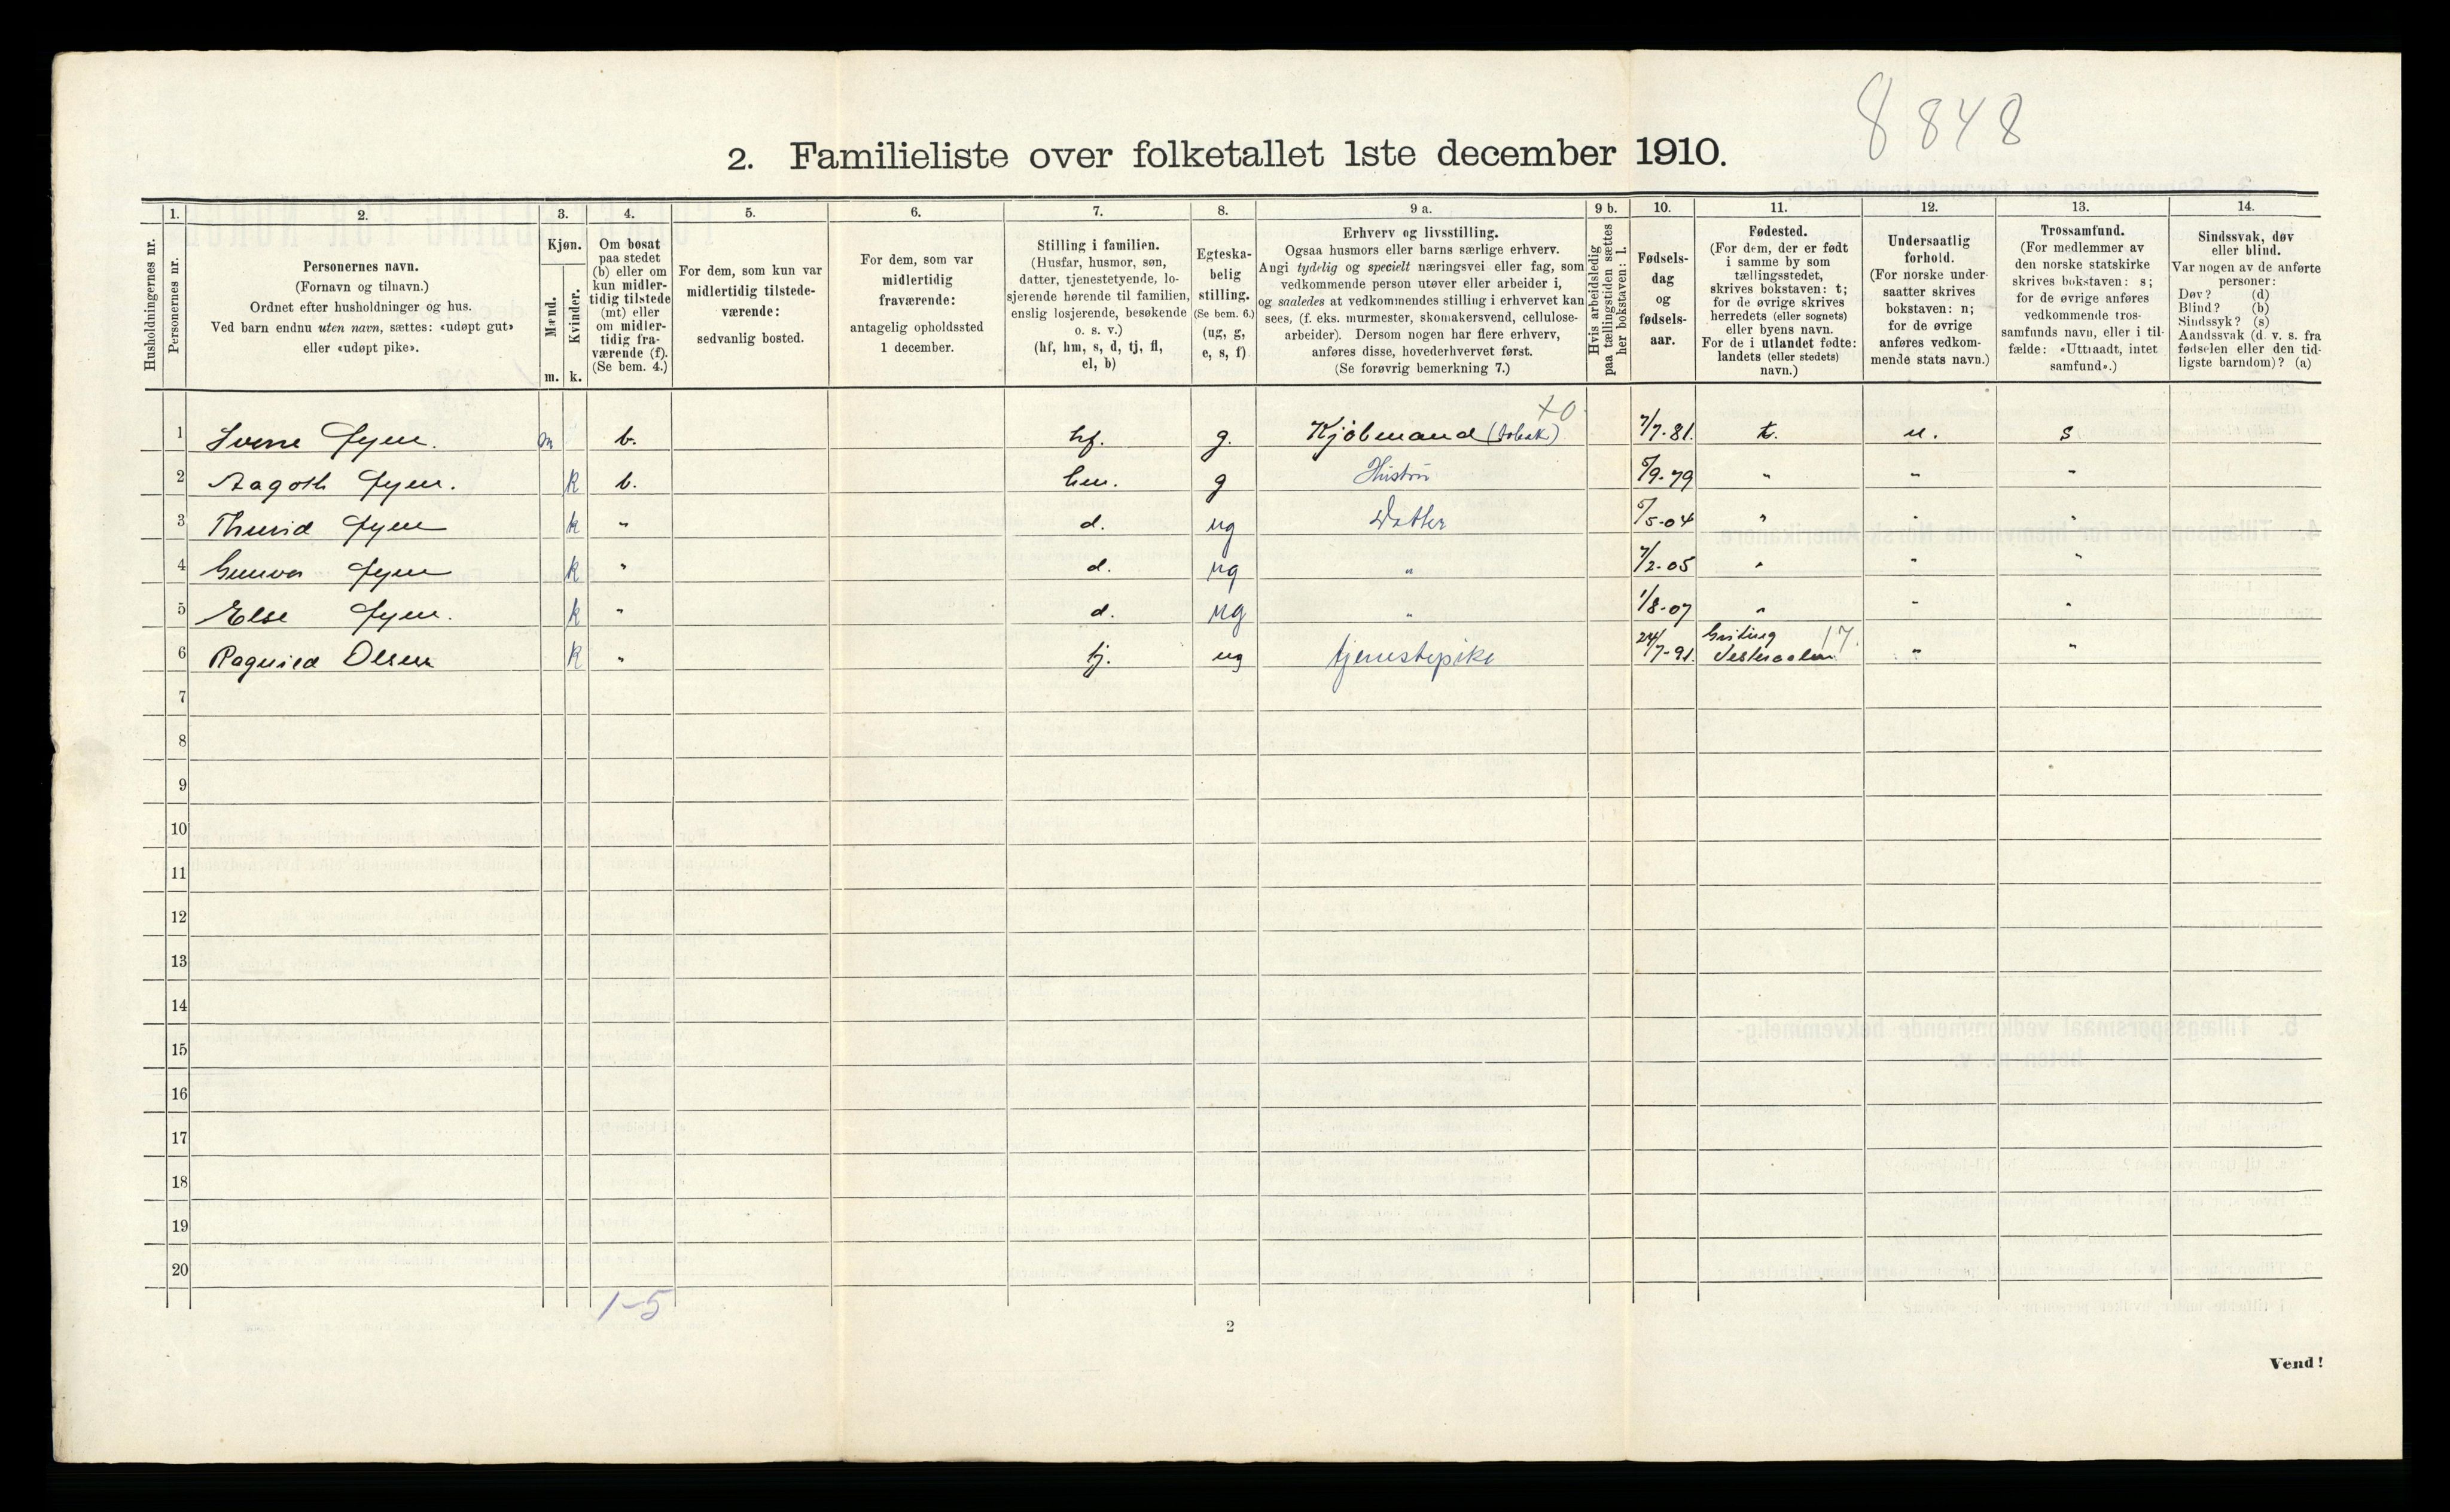 8848
2. Familieliste over folketallet 1ste december 1910.
Husholdningernes nr.
1.
Personernes nr.
2.
Personernes navn.
(Fornavn og tilnavn.)
Ordnet efter husholdninger og hus.
Ved barn endnu uten navn, sættes: «udøpt gut»
eller «udøpt pike».
3.
Kjøn.
Mænd.
m.
Kvinder.
k.
4.
Om bosat
paa stedet
(b) eller om
kun midler-
tidig tilstede
(mt) eller
om midler-
tidig fra-
værende (f).
(Se bem. 4.)
5.
For dem, som kun var
midlertidig tilstede-
værende:
sedvanlig bosted.
6.
For dem, som var
midlertidig
fraværende:
antagelig opholdssted
1 december.
7.
Stilling i familien.
(Husfar, husmor, søn,
datter, tjenestetyende, lo-
sjerende hørende til familien,
enslig losjerende, besøkende
o. s. v.)
(hf, hm, s, d, tj, fl,
el, b)
8.
Egteska-
belig
stilling.
(Se bem. 6.)
(ug, g,
e, s, f)
9 a.
Erhverv og livsstilling.
Ogsaa husmors eller barns særlige erhverv.
Angi tydelig og specielt næringsvei eller fag, som
vedkommende person utøver eller arbeider i,
og saaledes at vedkommendes stilling i erhvervet kan
sees, (f. eks. murmester, skomakersvend, cellulose-
arbeider). Dersom nogen har flere erhverv,
anføres disse, hovederhvervet først.
(Se forøvrig bemerkning 7.)
9 b.
Hvis arbeidsledig
paa tællingstiden sættes
her bokstaven: l.
10.
Fødsels-
dag
og
fødsels-
aar.
11.
Fødested.
(For dem, der er født
i samme by som
tællingsstedet,
skrives bokstaven: t;
for de øvrige skrives
herredets (eller sognets)
eller byens navn.
For de i utlandet fødte:
landets (eller stedets)
navn.)
12.
Undersaatlig
forhold.
(For norske under-
saatter skrives
bokstaven: n;
for de øvrige
anføres vedkom-
mende stats navn.)
13.
Trossamfund.
(For medlemmer av
den norske statskirke
skrives bokstaven: s;
for de øvrige anføres
vedkommende tros-
samfunds navn, eller i til-
fælde: «Uttraadt, intet
samfund».)
14.
Sindssvak, døv
eller blind.
Var nogen av de anførte
personer:
Døv? (d)
Blind? (b)
Sindssyk? (s)
Aandssvak (d. v. s. fra
fødselen eller den tid-
ligste barndom)? (a)
1 m b. hf. g. Kjöbmand (tobak) 7/7-81. t. n. s
2 Aagoth k b. hm. g Hustru 5/9-79 " " "
3 Thurid k " d. ug Datter 5/5-04 " " "
4 Gunvor k " d. ug " 7/2-05 " " "
5 Else k " d. ug " 1/8-07 " " "
6 Ragnild Olsen k " tj. ug tjenestepike 24/7-91. Vesteraalen 17. " "
7
8
9
10
11
12
13
14
15
16
17
18
19
20
1-5
2
Vend!